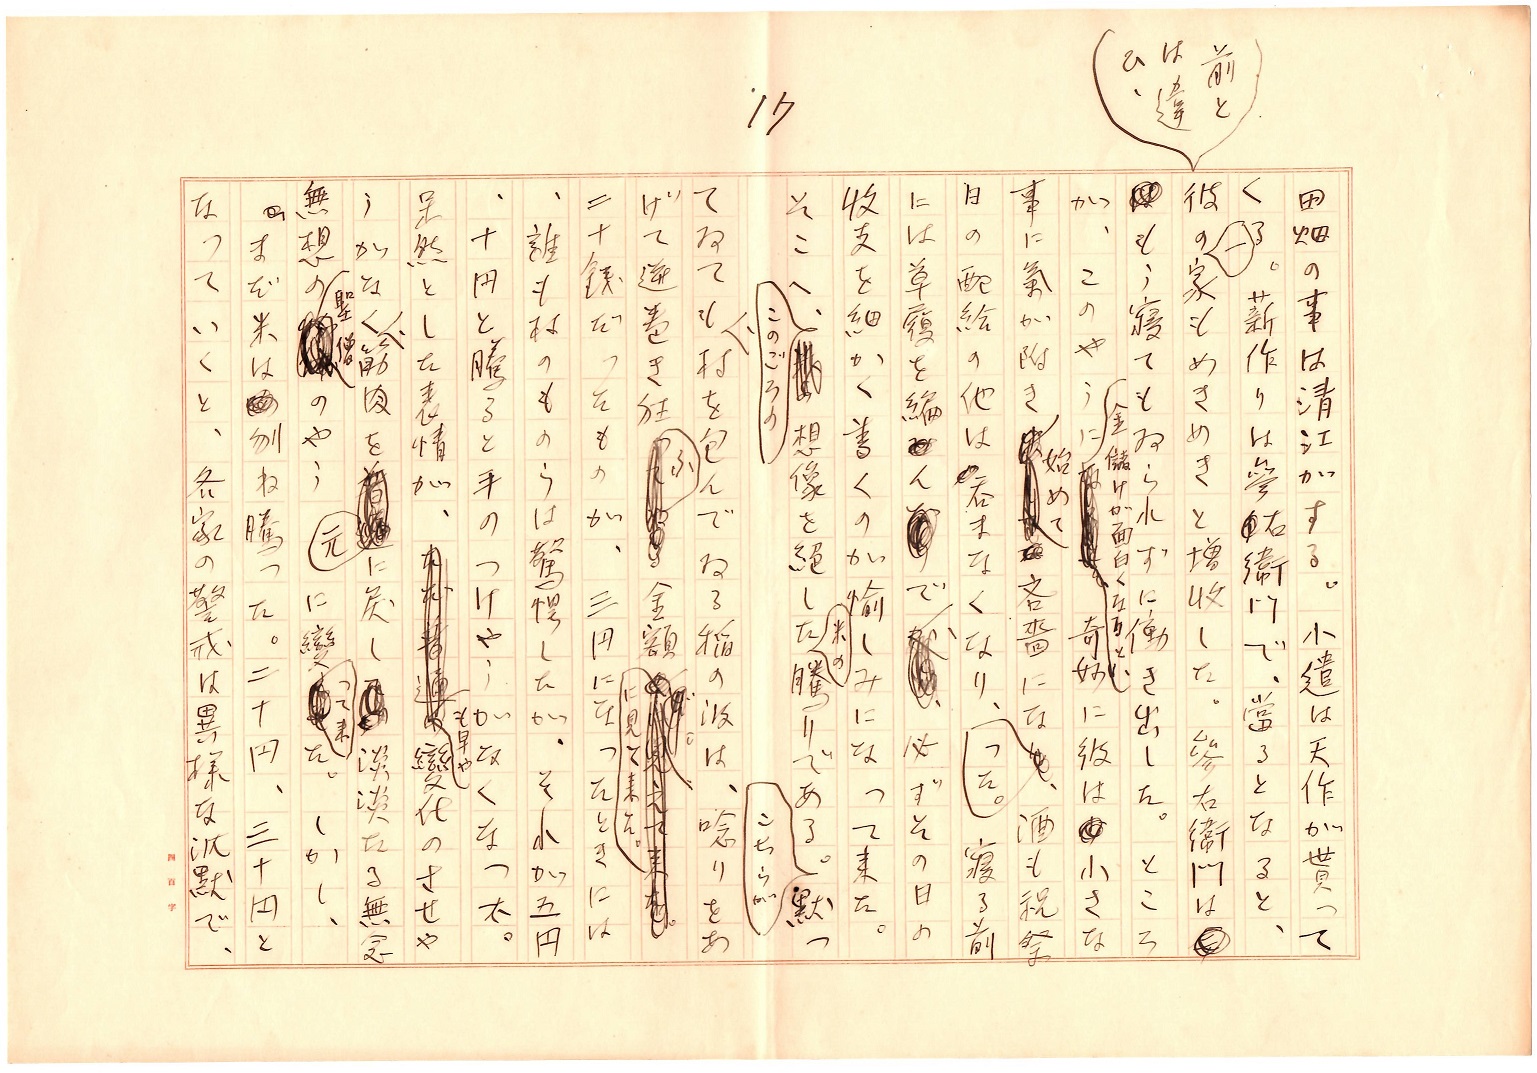 17
田畑の事は清江がする。小遣は天作が貰って
くる。薪作りは參右衛門で、當るとなると、
前と
は違
ひ、
彼の一家もめきめきと増收した。參右衛門は
もう寝てもゐられずに働き出した。ところ
が、このやうに金儲けが面白くなると
奇妙に彼は小さな
事に氣が附き始めて
吝嗇になり、酒も祝祭
日の配給の他は呑まなくなつた。
寝る前
には草履を編んで、必ずその日の
收支を細かく書くのが愉しみになって来た。
そこへ、このごろの
米の
想像を絶した騰りである。默つ
こちらが
てゐても村を包んでゐる稲の波は、唸りをあ
げて逆巻き狂ふ
金額
に見て来た。
二十銭だったものが、三円になったときには
、誰も村のものらは驚愕したが、それが五円
、十円と騰ると手のつけやうがなくなつた。
呆然とした表情が、
も早や
變化のさせや
うがなく筋肉を
元
に戻し
淡淡たる無念
無想の聖僧
のやうに變って来
た。しかし、
まだ米は刎ね騰った。二十円、三十円と
なっていくと、各家の警戒は異様な沈默で、
四百字